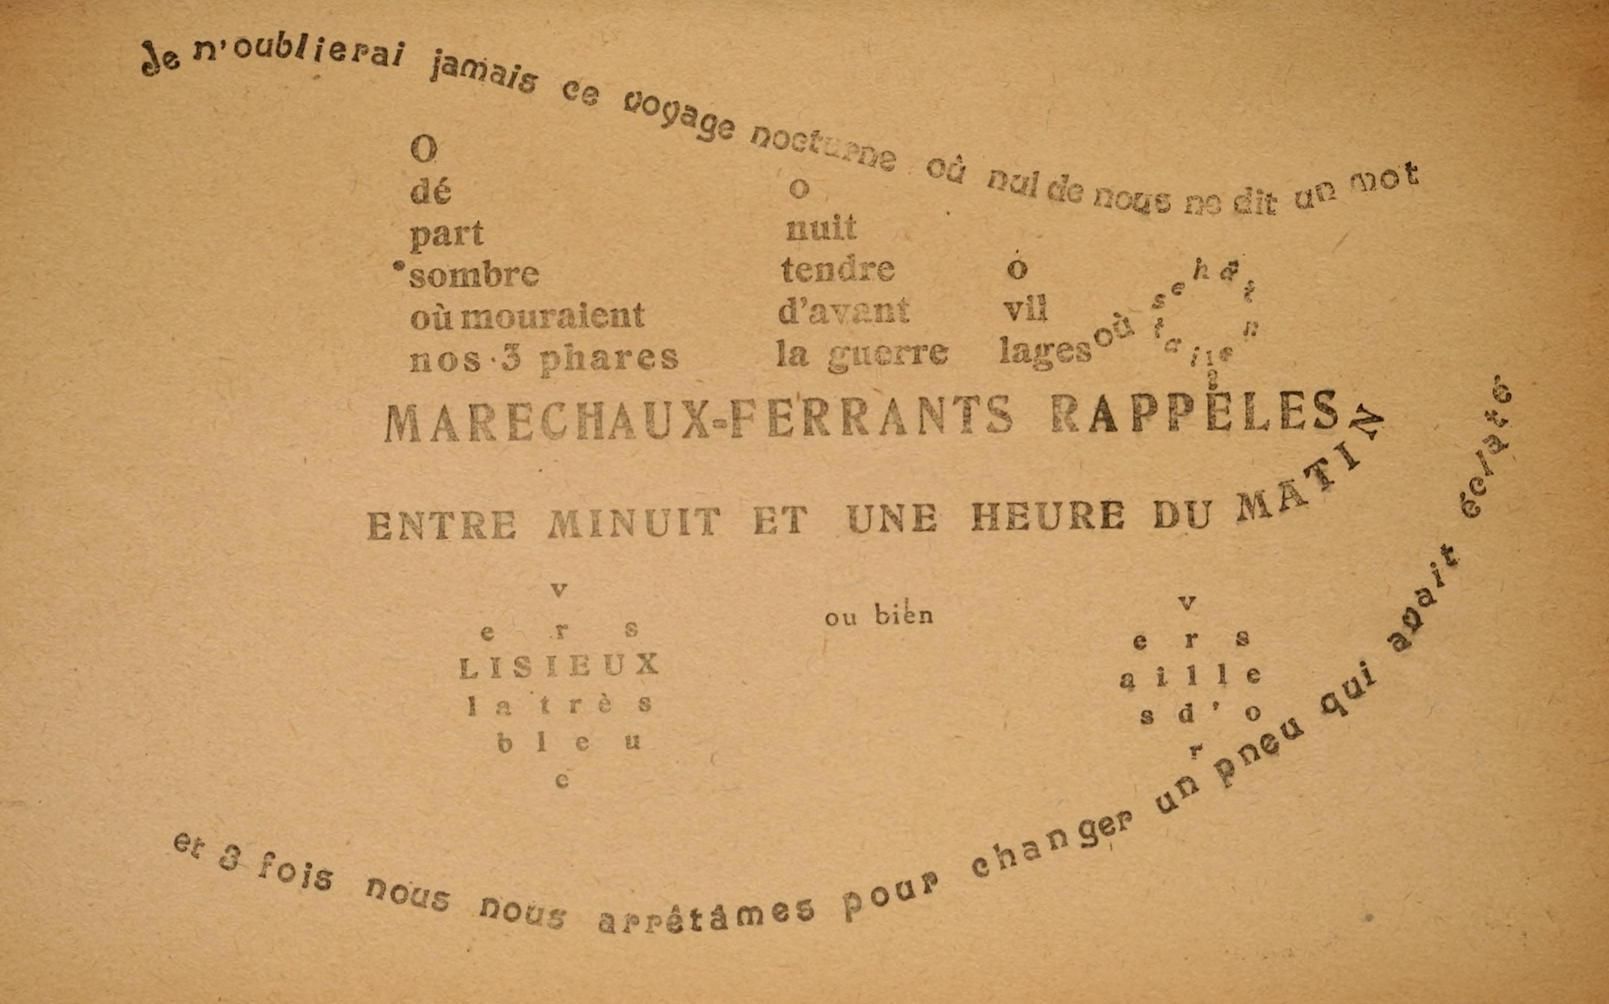 Je n'oublierai jamais ce voyage nocturne où nul de nous ne dit un mot
O
dé
part
sombre
où mouraient
nos 3 phares
o
nuit
tendre
d'avant
la guerre
ô
vil
lages où se hâtaient les
MARECHAUX-FERRANTS RAPPELÉS
ENTRE MINUIT ET UNE HEURE DU MATIN
v
e r s
LISIEUX
l a t r è s
b l e u
e
ou bien
v
e r s
a i l l e
s d ' o
r
et 3 fois nous nous arrêtâmes pour changer un pneu qui avait éclaté